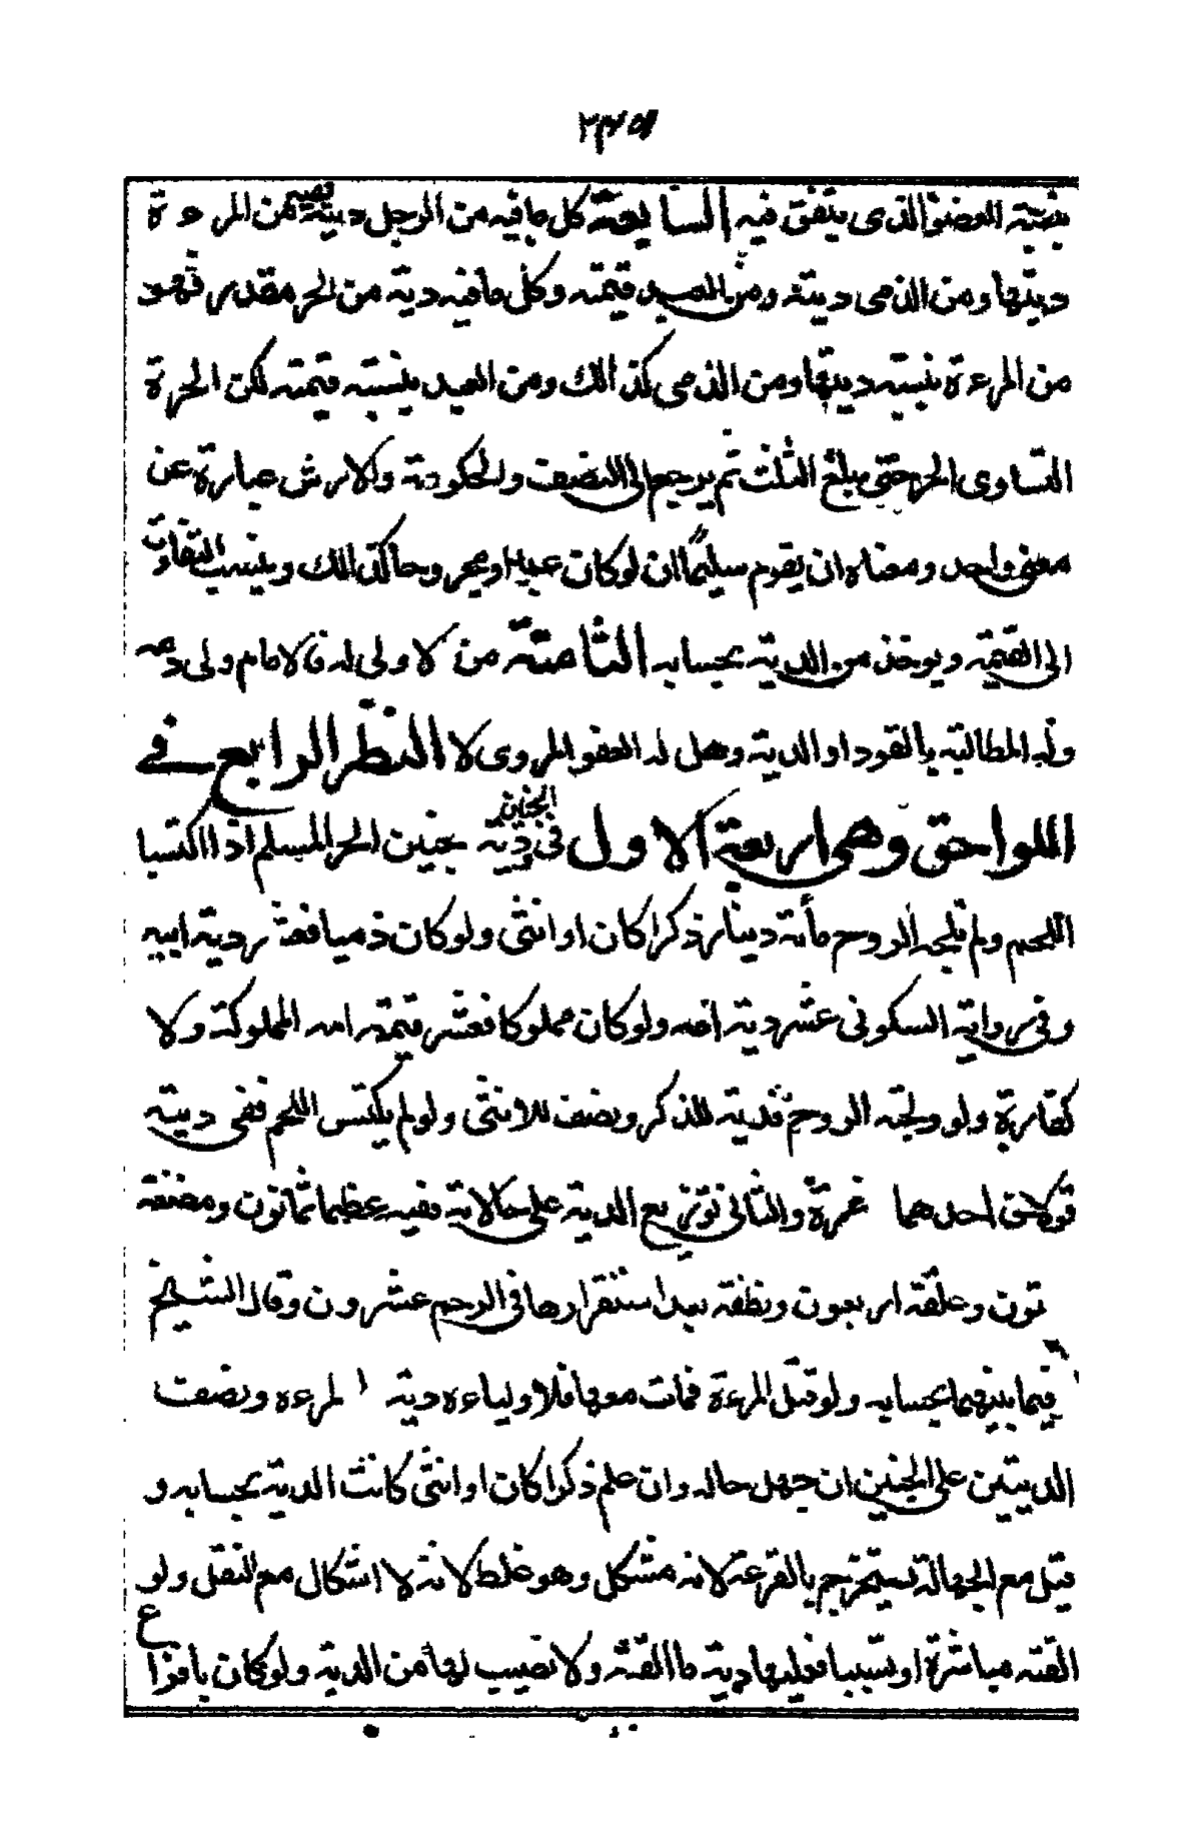 ٢٣٥١
بنسبة العضو الذي يتفق فيه السابعة كل ما فيه من الرجل ديته فهيه من المرءة
ديتها ومن الذمى ديته ومن العبد قيمته وكل ما فيه دية من الحر مقدر فهو
من المرءة بنسبة ديتها ومن الذمى كذالك ومن العبد بنسبته قيمته لكن الحرة
التساوى الحر حتى يبلغ الثلث ثم يرجع الى النصف والحكومة والارش عبارة عن
معنى واحد ومعناه ان يقوم سليما ان لو كان عبدا و مجروحا كذالك وينسب التفاوت
الى القيمة ويوخذ من الدية بحسابه الثامنة من لا ولى له فالامام ولى دمه
وله المطالبة بالقود او الدية وهل له العفو المروى لا النظر الرابع في
اللواحق وهى اربعة الاول في دية الجنين جنين الحر المسلم اذا اكتسا
اللحم ولم تلجه الروح مائة دينار ذكرا كان او انثى ولو كان ذميا فعشر دية ابيه
وفى رواية السكونى عشر دية امه ولو كان مملوكا فعشر قيمة امه المملوكة ولا
كفارة ولو ولجته الروح فدية للذكر ونصف للانثى ولو لم يكتس اللحم ففى ديته
قولان احدهما غرة والثانى توزيع الدية على حالاته ففيه عظما ثمانون ومضغة
ستون وعلقة اربعون ونطفة بعد استقرارها فى الرحم عشرون وقال الشيخ
فيما بينهما بحسابه ولو قتل المرءة فمات معها فلاولياءه دية المرءة ونصف
الديتين على الجنين ان جهل حاله وان علم ذكرا كان او انثى كانت الدية بحسابه و
قيل مع الجهالة يستخرج بالقرعة لانه مشكل وهو غلط لانه لا اشكال مع النقل ولو
القته مباشرة او تسبيبا فعليها دية ما القته ولا نصيب لها من الدية ولو كان بافزاع